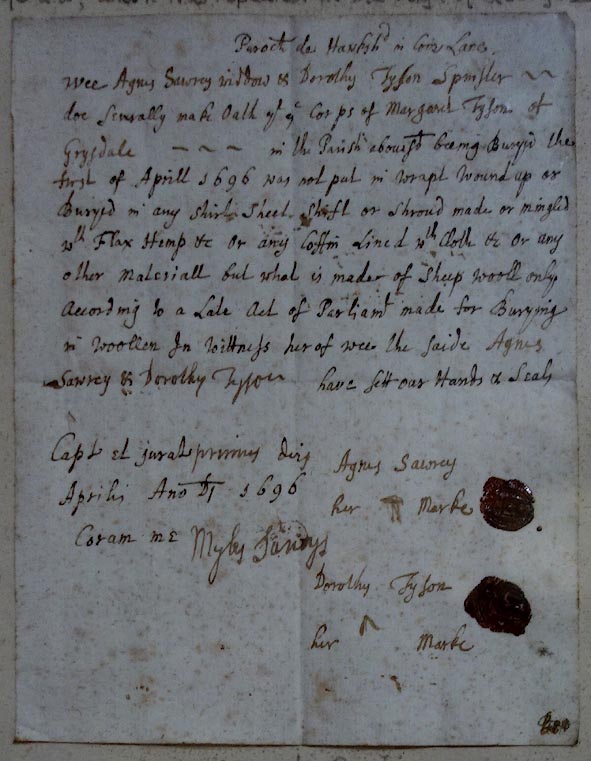 Paroch de Hawkshd in Com Lanc.
Wee Agnes Sawrey widdow & Dorothy Tyson Spinster ~ ~
doe Severally make Oath yt ye Corps of Margaret Tyson of
Grysdale ~ ~ ~ in the Parish abovesd beeing Buryed the
first of Aprill 1696 was not put in wrapt wound up or
Buryed in any Shirt Sheet Shift or Shroud made or mingled
wth Flax Hemp &c Or any Coffin Lined wth Cloth &c Or any
other Materiall but what is made of Sheep wooll only
According to a Late Act of Parliamt made for Burying
in woollen In Wittness herof wee the saide Agnes
Sawrey & Dorothy Tyson have sett our Hands & Seals
Capt et jurat primus die
Aprilis Ano Di 1696
Coram me Myles Sandys
Agnes Sawrey
her Marke
Dorothy Tyson
her Marke